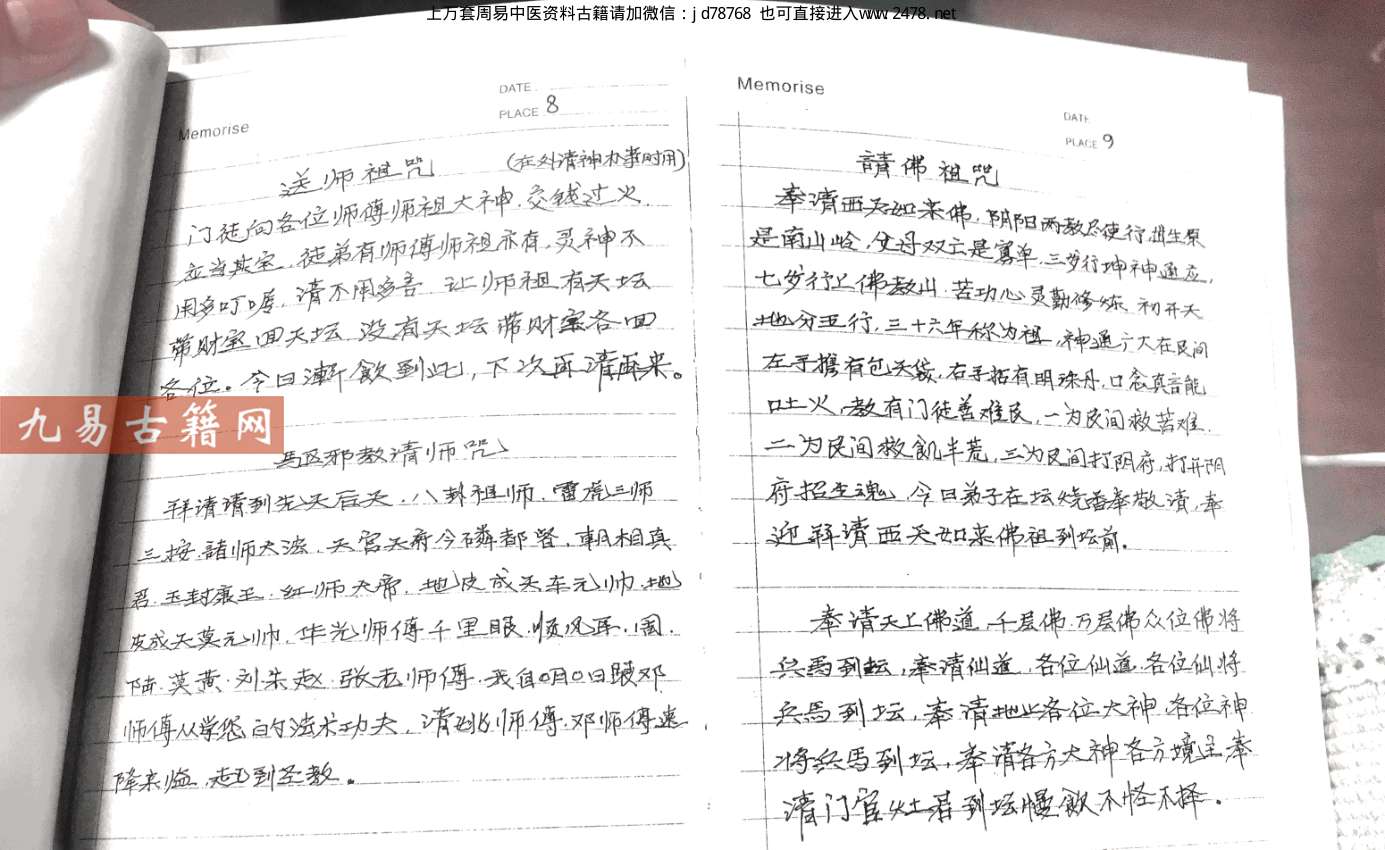 上万套周易中医资料古籍请加微信：jd78768 也可直接进入www.2478.net
Memorise
DATE
PLACE 8
送师祖咒
(在外清神办事时用)
门徒向各位师傅师祖大神.交钱过火.
立当其宝.徒弟有师傅师祖亦有.灵神不
用多叮咛.请不用多言 让师祖有天坛
带财宝回天坛 没有天坛带财宝各回
各位。今日漸飲到此,下次再请再来。
九易古籍网
驱邪教请师咒
拜请请到先天后天.八卦祖师.雷虎三师
三按.諸师大法.天宫天府令 都督.朝相真
君.玉封康王.红师大帝.地皮成天车元帅.地
皮成天莫元帅.华光师傅千里眼.顺风耳.周.
陆.莫黄.刘朱赵.张老师傅.我自0月0日跟邓
师傅从学您的法术功夫.请 师傅.邓师傅速
降来临.赶到圣教。
Memorise
DATE
PLACE 9
請佛祖咒
奉请西天如来佛.阴阳两教尽使行.出生原
是南山岭,父母双亡是寡单.三岁行坤神通应,
七岁行上佛教山.苦功心灵勤修炼.初开天
地分五行,三十六年称为祖,神通广大在民间
左手携有包天袋,右手拈有明珠丹.口念真言能
吐火.教有门徒善难民,一为民间救苦难.
二为民间救飢半荒,三为民间打阴府,打开阴
府招生魂.今日弟子在坛烧香奉敬请,奉
迎拜请西天如来佛祖到坛前.
奉请天上佛道.千层佛.万层佛众位佛将
兵馬到坛,奉请仙道.各位仙道.各位仙将
兵馬到坛,奉请地上各位大神.各位神
将兵馬到坛,奉请各方大神各方境主奉
请门官灶君到坛慢飲不怪不择.